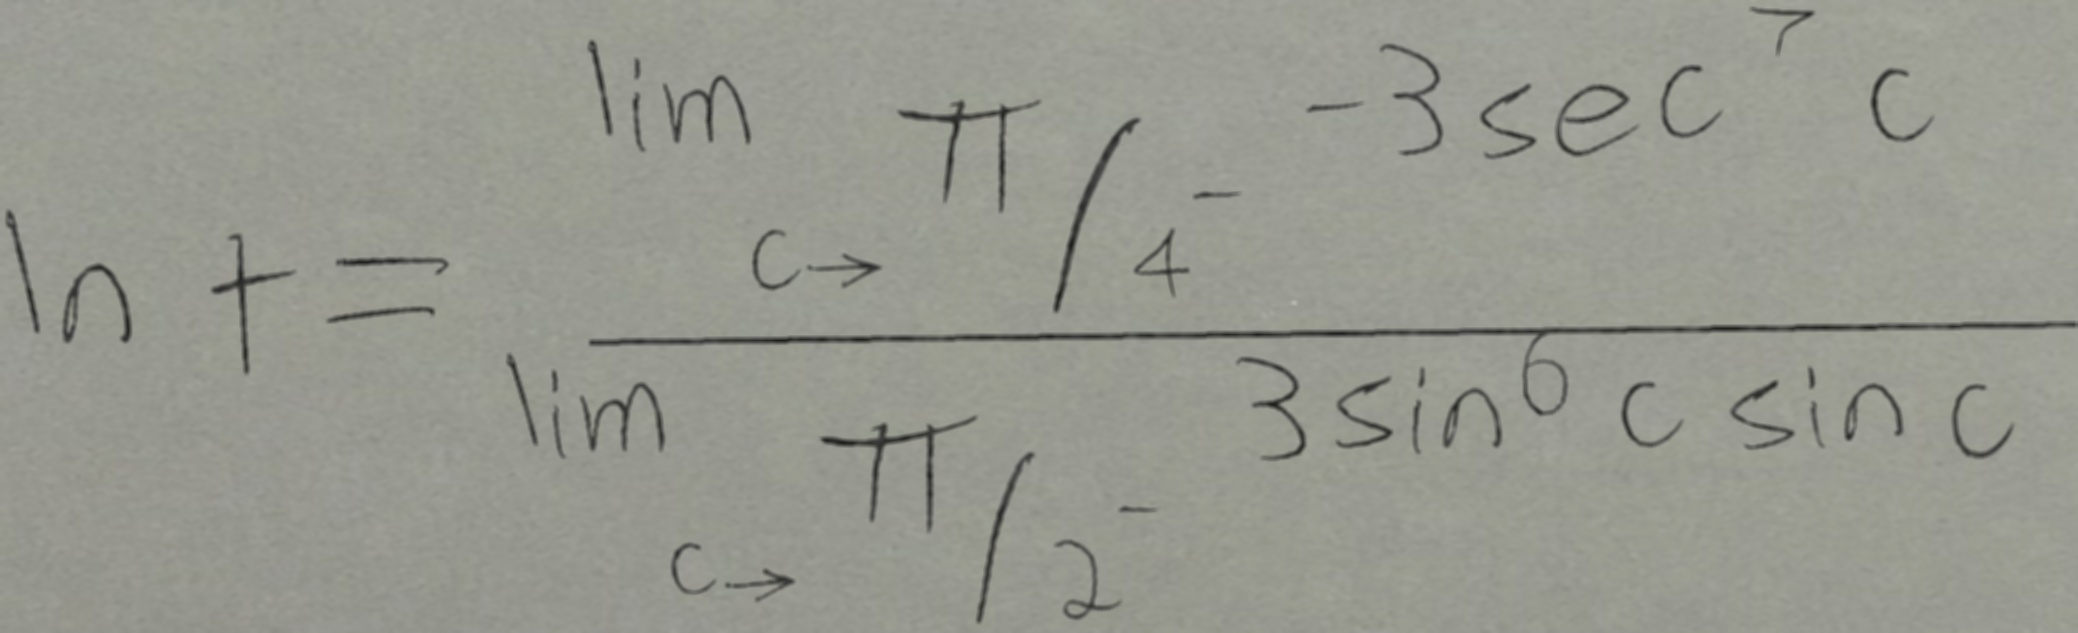 \ln t = \frac{\lim_{c \to \pi/4^-} -3\sec^7 c}{\lim_{c \to \pi/2^-} 3\sin^6 c \sin c}